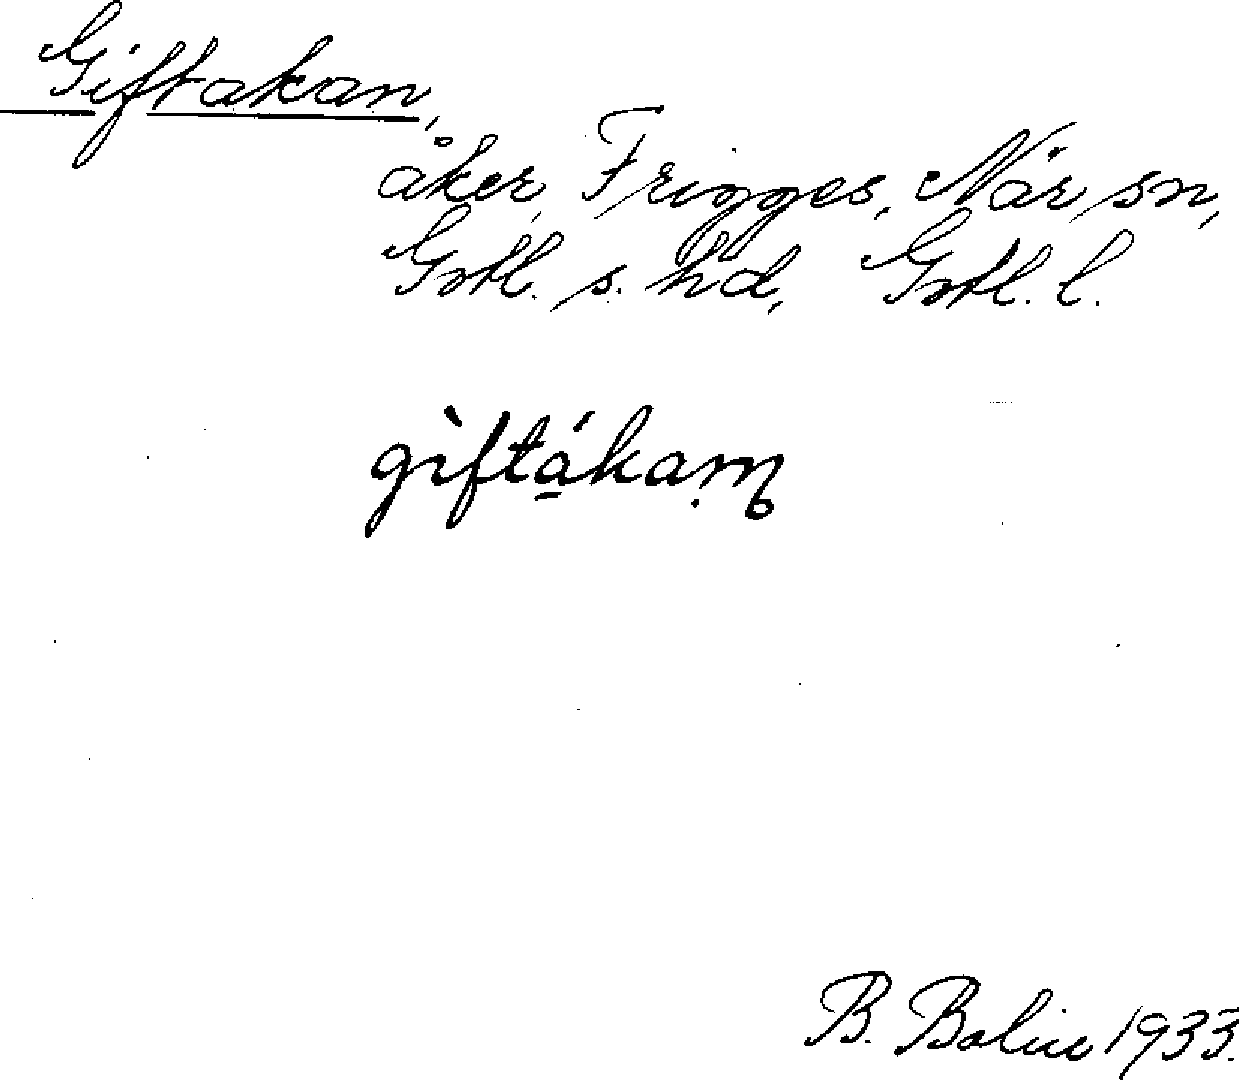 Giftakan,
åker, Frigges, När sn,
Gotl. s. hd, Gotl. l.
giftákam
B. Bolin 1933.